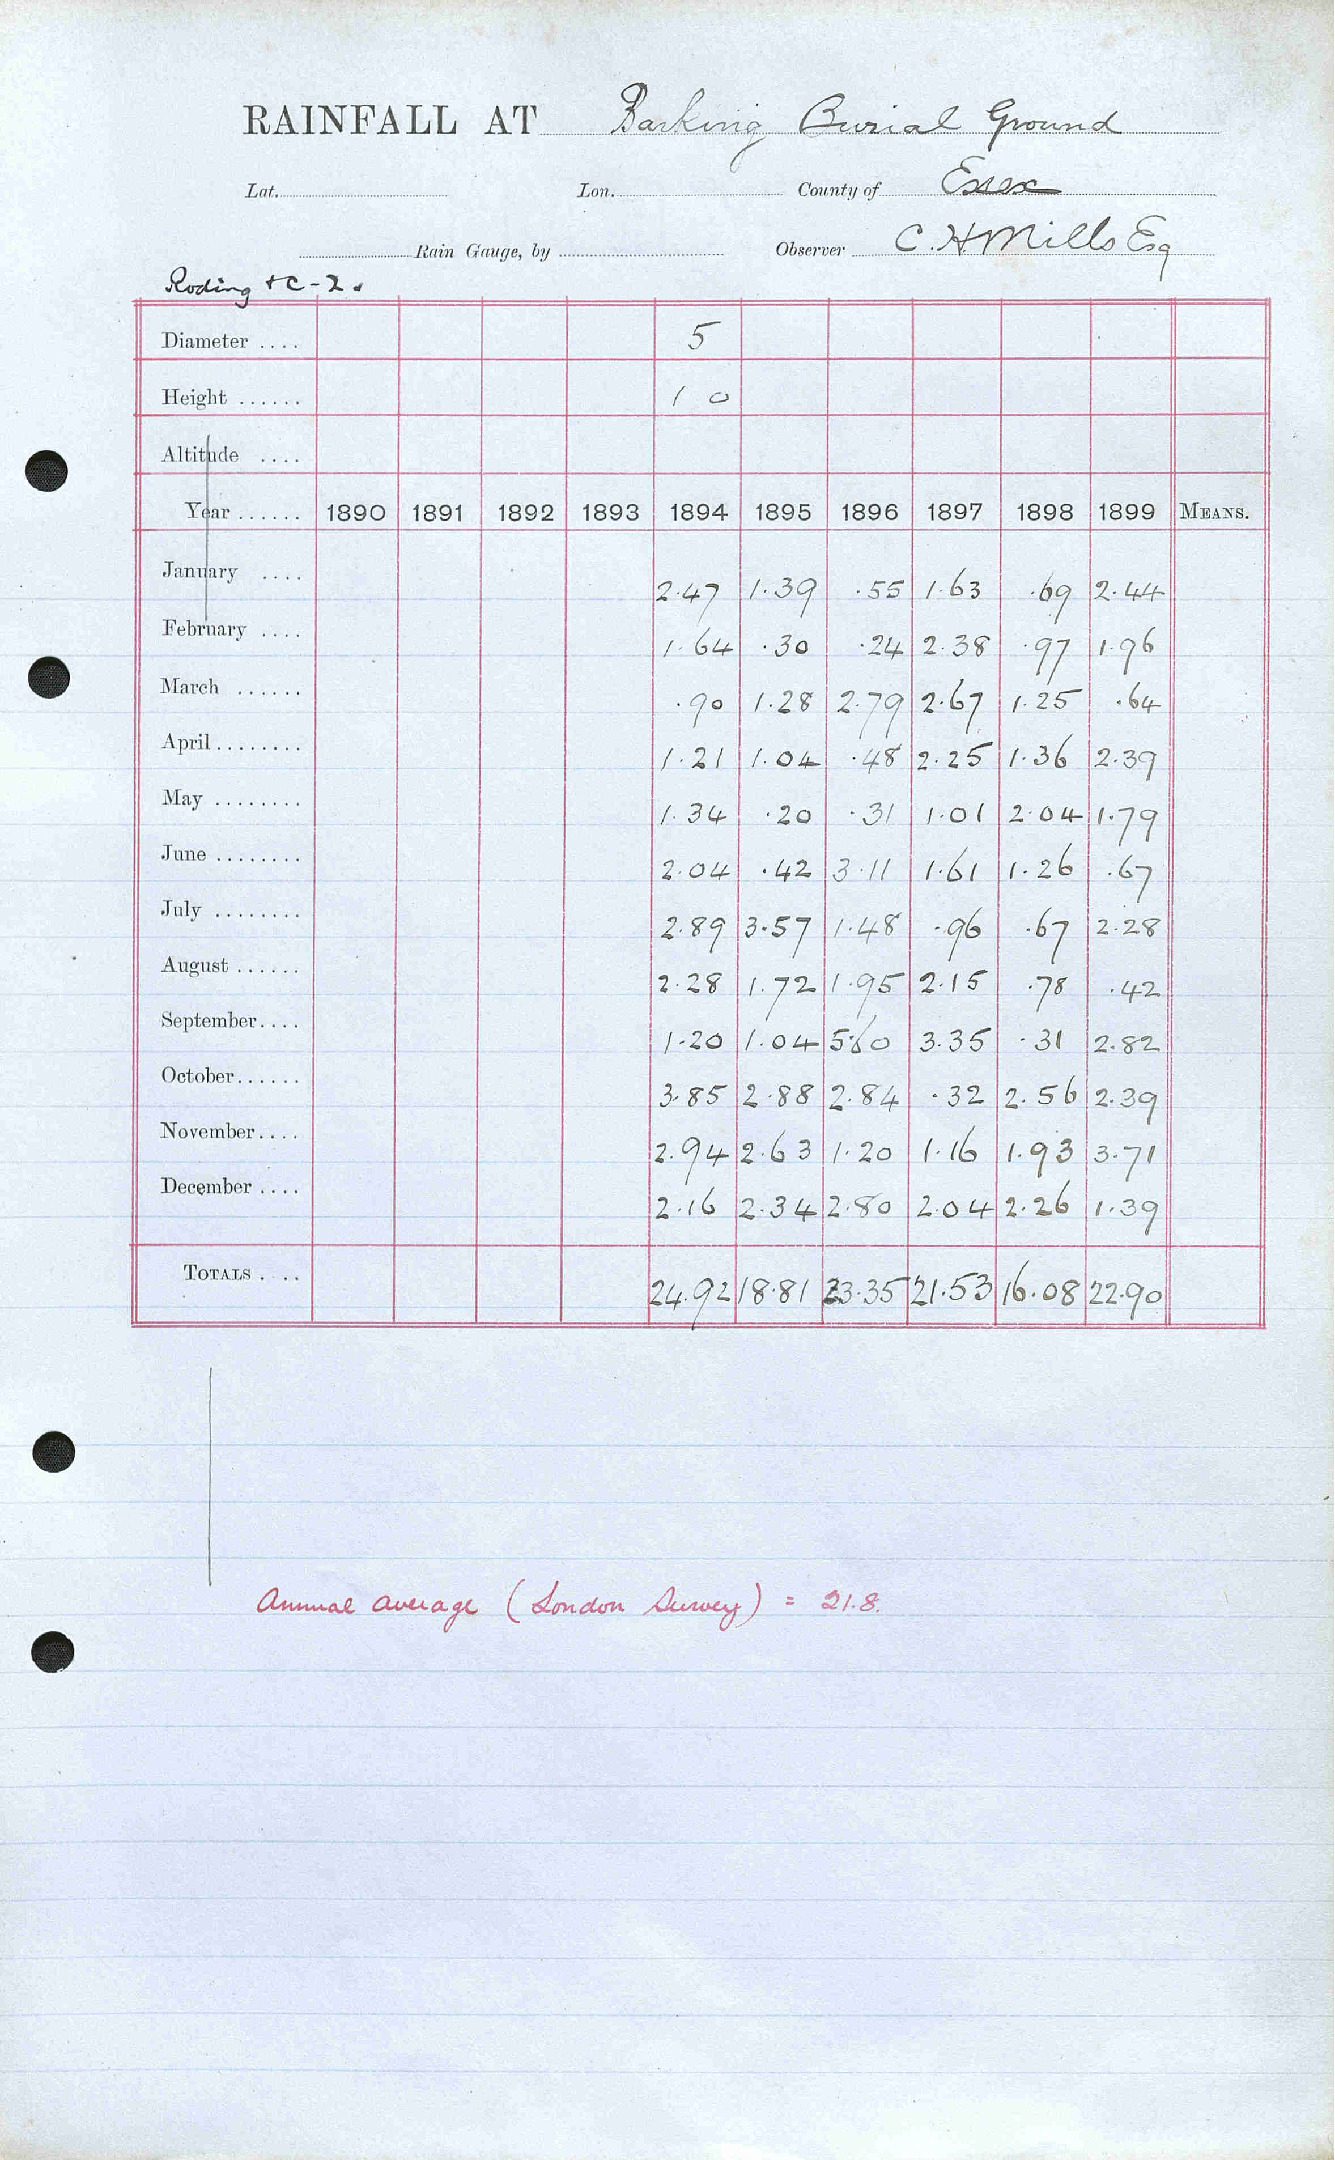 RAINFALL AT Barking Burial Ground
Lat. Lon. County of Essex
Rain Gauge, by Observer C. H Mills Esq
Roding + C - 2.
Diameter .... 5
Height ...... 1 0
Altitude ....
Year ...... 1890 1891 1892 1893 1894 1895 1896 1897 1898 1899 MEANS.
January .... 2.47 1.39 .55 1.63 .69 2.44
February .... 1.64 .30 .24 2.38 .97 1.96
March ...... .90 1.28 2.79 2.67 1.25 .64
April ........ 1.21 1.04 .48 2.25 1.36 2.39
May ........ 1.34 .20 .31 1.01 2.04 1.79
June ........ 2.04 .42 3.11 1.61 1.26 .67
July ........ 2.89 3.57 1.48 .96 .67 2.28
August ...... 2.28 1.72 1.95 2.15 .78 .42
September.... 1.20 1.04 5.60 3.35 .31 2.82
October...... 3.85 2.88 2.84 .32 2.56 2.39
November.... 2.94 2.63 1.20 1.16 1.93 3.71
December .... 2.16 2.34 2.80 2.04 2.26 1.39
TOTALS .... 24.92 18.81 23.35 21.53 16.08 22.90
Annual average (London Survey) = 21.8.